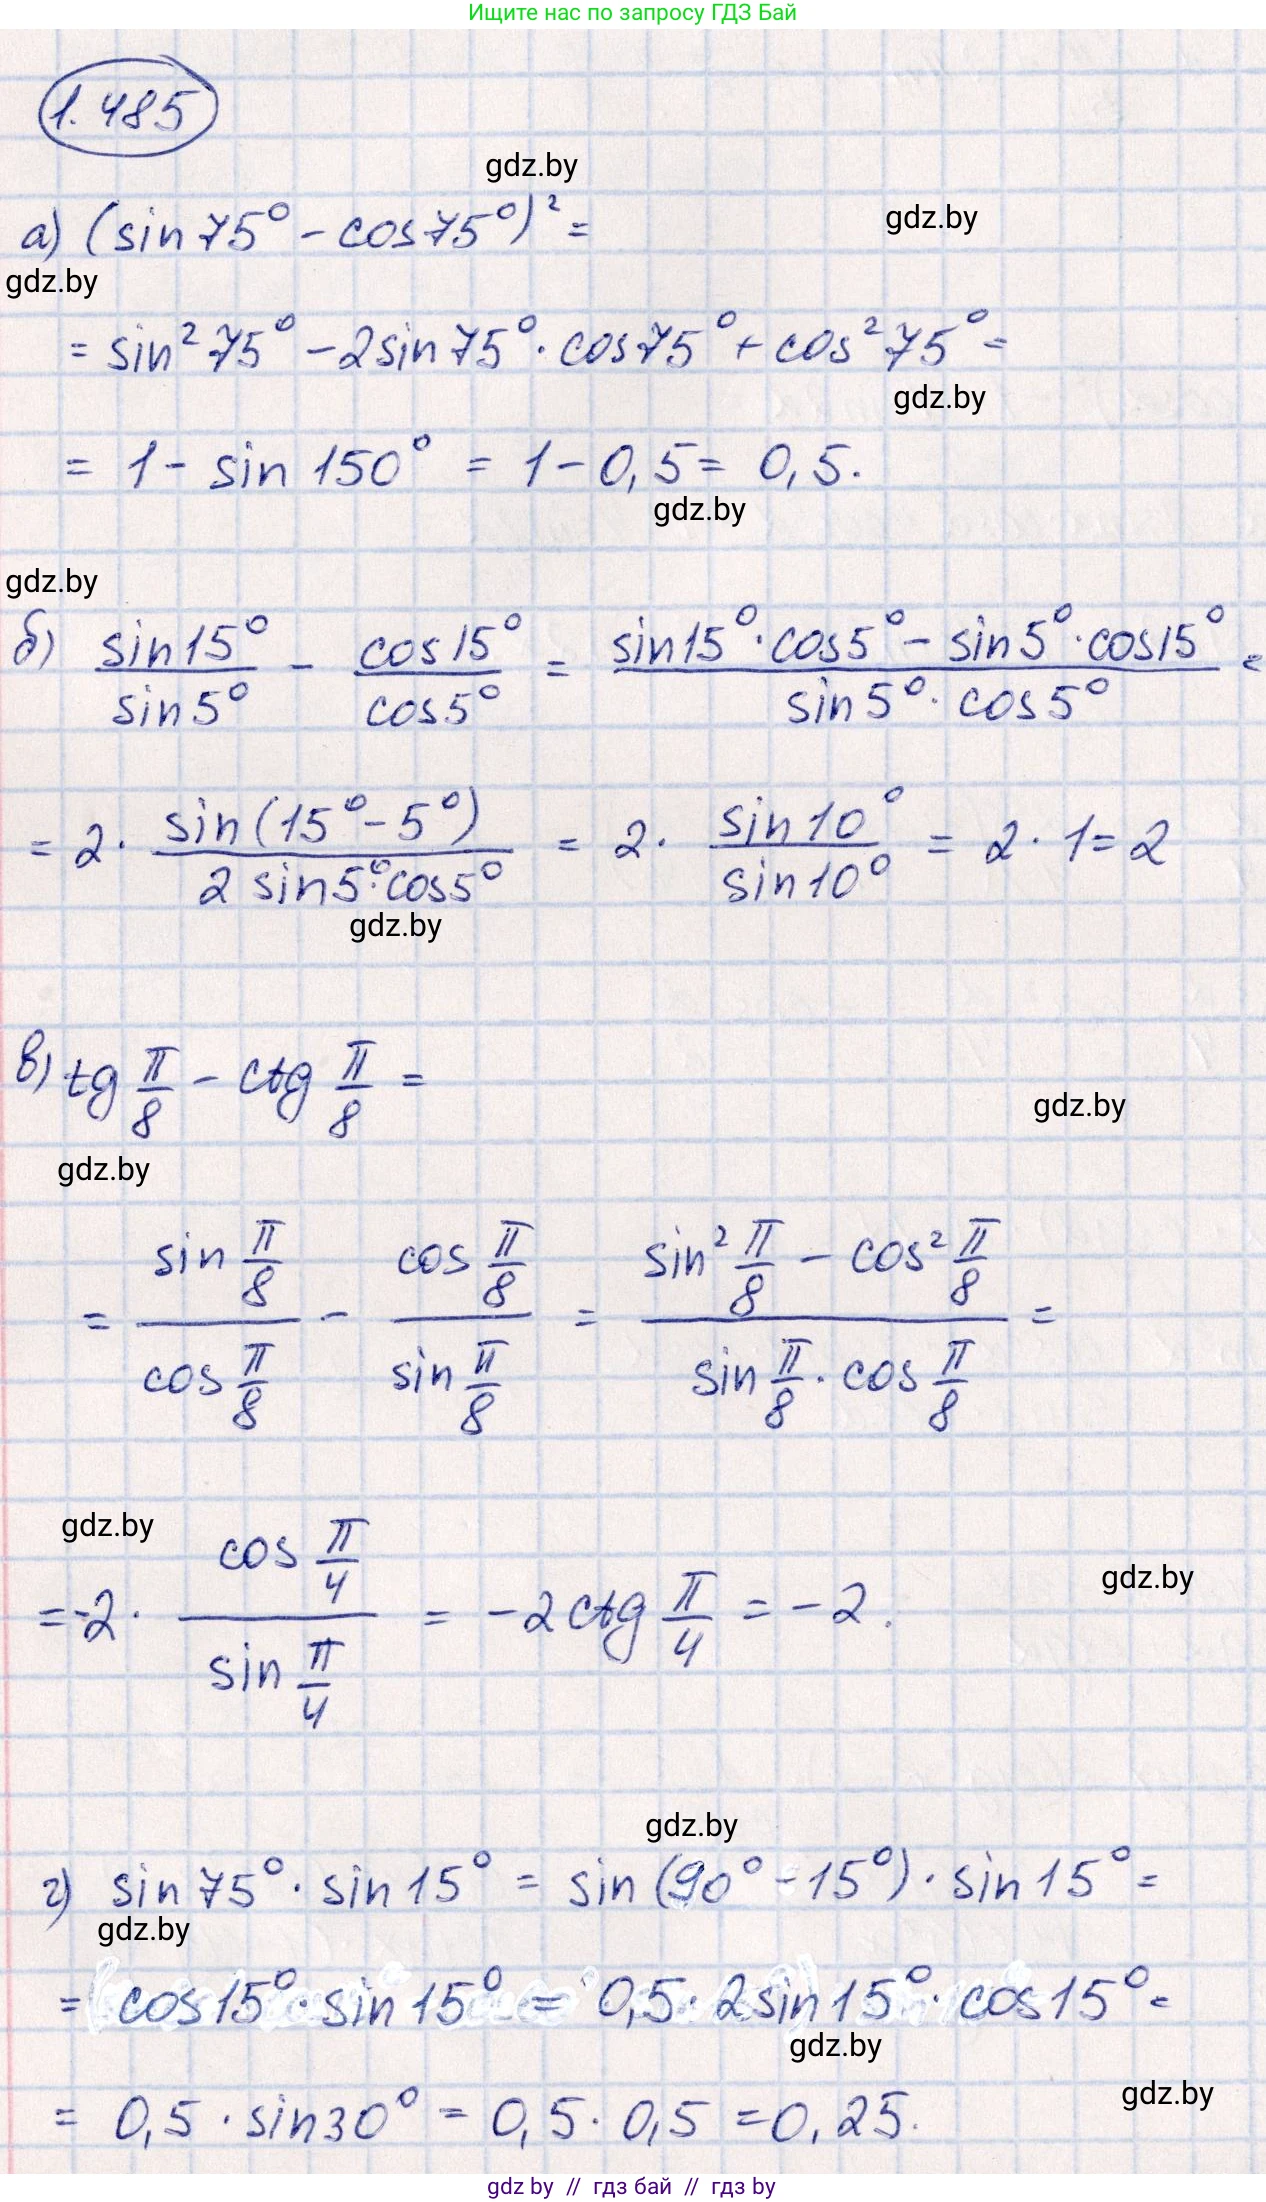 Ищите нас по запросу ГДЗ Бай
1.485
gdz.by
а) (sin 75° - cos 75°)² =
gdz.by
gdz.by
= sin² 75° - 2 sin 75° · cos 75° + cos² 75° =
gdz.by
= 1 - sin 150° = 1 - 0,5 = 0,5.
gdz.by
gdz.by
б) sin 15° / sin 5° - cos 15° / cos 5° = (sin 15° · cos 5° - sin 5° · cos 15°) / (sin 5° · cos 5°) =
= 2 · sin (15° - 5°) / (2 sin 5° · cos 5°) = 2 · sin 10° / sin 10° = 2 · 1 = 2
gdz.by
в) tg π/8 - ctg π/8 =
gdz.by
gdz.by
= sin π/8 / cos π/8 - cos π/8 / sin π/8 = (sin² π/8 - cos² π/8) / (sin π/8 · cos π/8) =
gdz.by
gdz.by
= -2 · cos π/4 / sin π/4 = -2 ctg π/4 = -2.
gdz.by
г) sin 75° · sin 15° = sin (90° - 15°) · sin 15° =
gdz.by
= cos 15° · sin 15° = 0,5 · 2 sin 15° · cos 15° =
gdz.by
gdz.by
= 0,5 · sin 30° = 0,5 · 0,5 = 0,25.
gdz by // гдз бай // гдз by